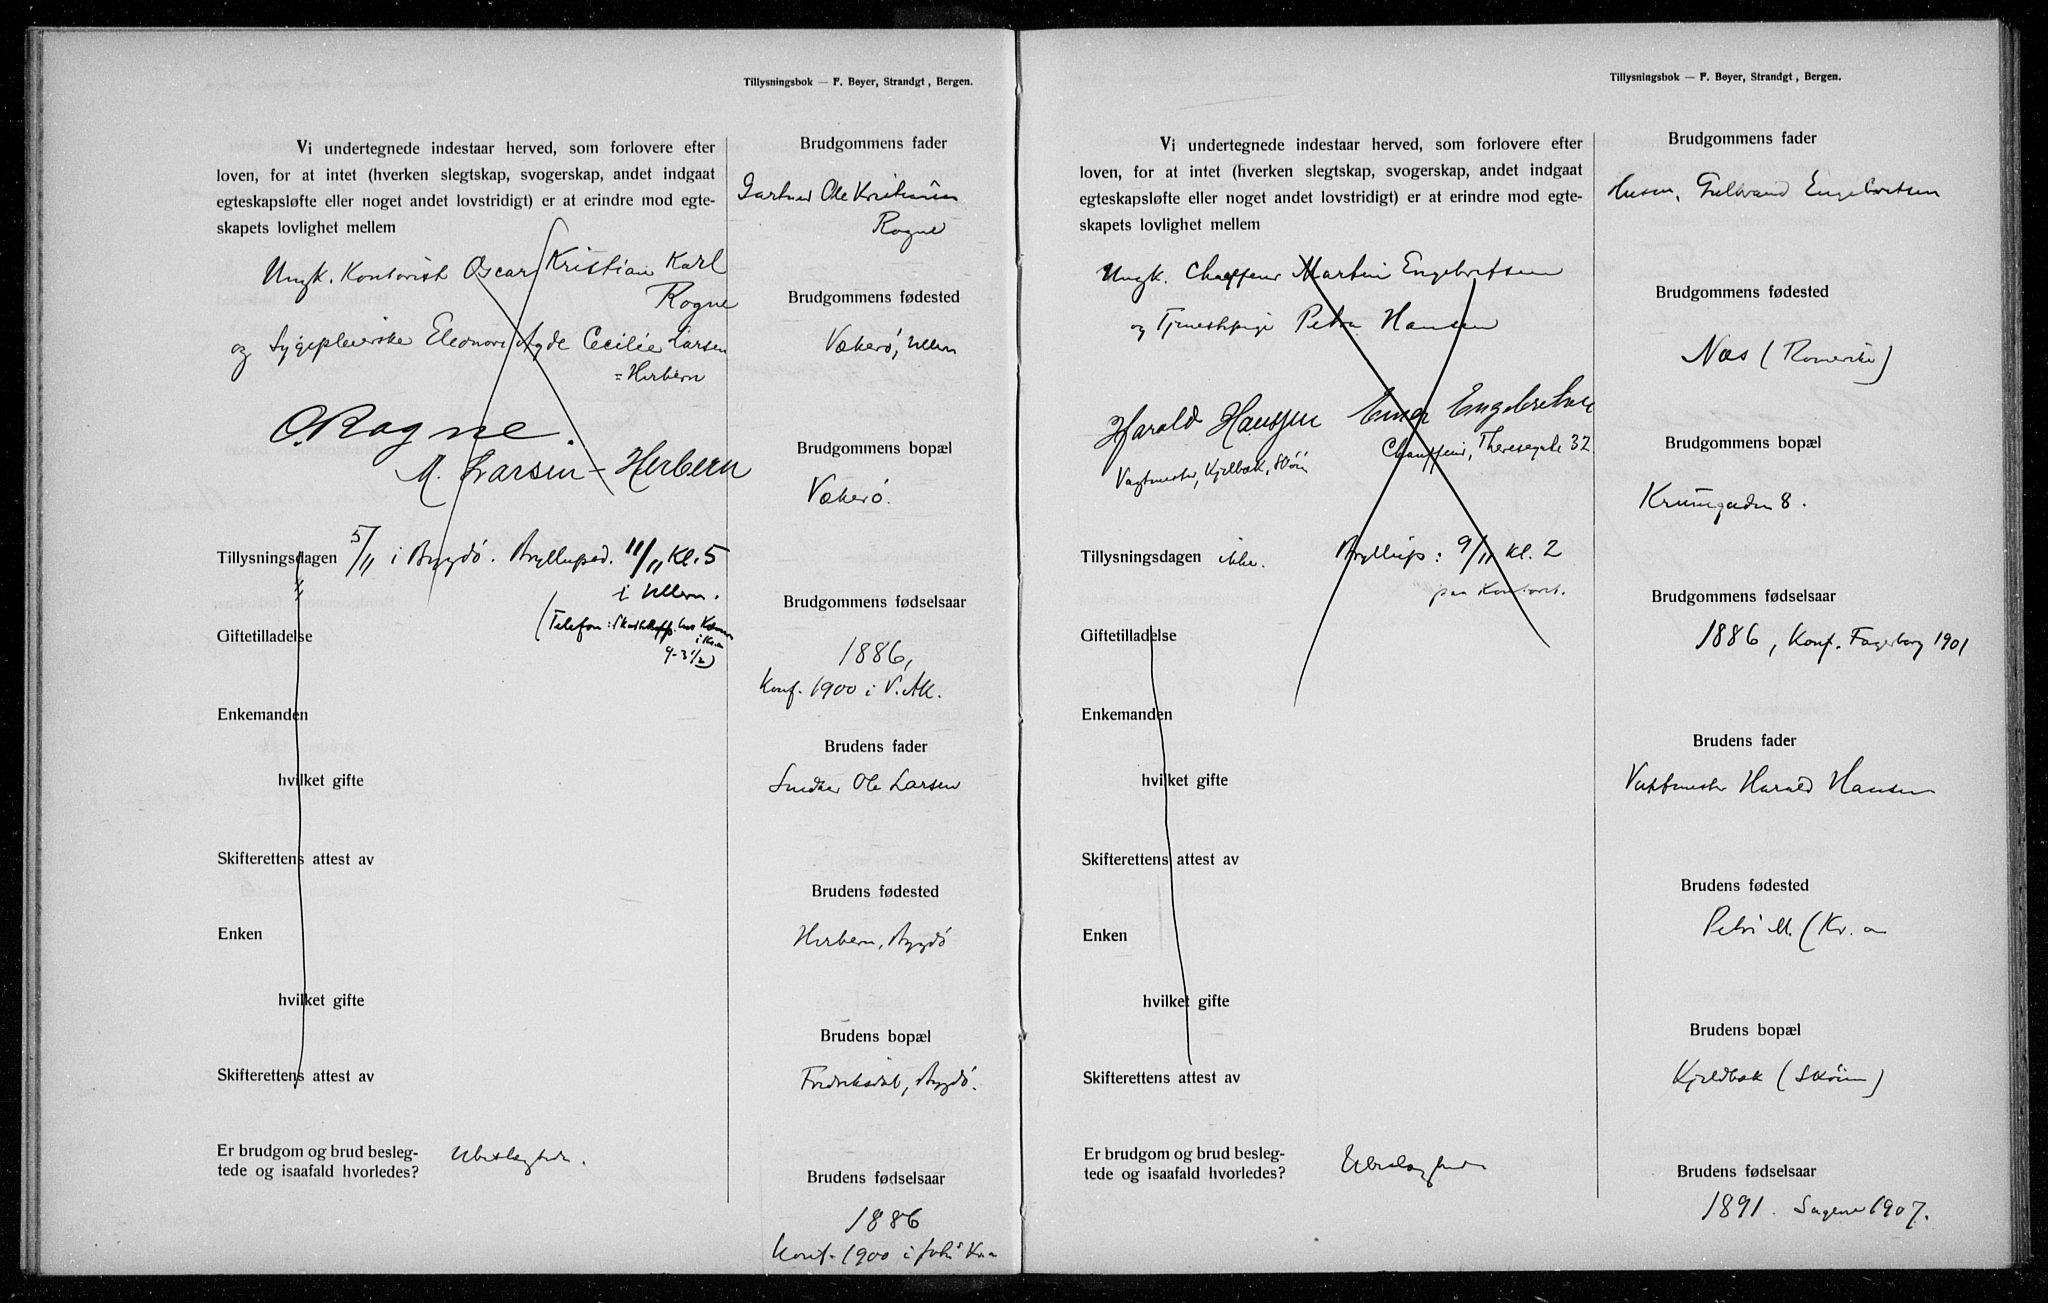 Tillysningsbok — F. Beyer, Strandgt, Bergen.
Vi undertegnede indestaar herved, som forlovere efter
loven, for at intet (hverken slegtskap, svogerskap, andet indgaat
egteskapsløfte eller noget andet lovstridigt) er at erindre mod egte-
skapets lovlighet mellem
Ungk. Kontorist Oscar Kristian Karl
Rogne
og Sygepleierske Eleonore Ayde Cecilie Larsen
=Herbern
O. Rogne.
M. Larsen-Herbern
Tillysningsdagen 5/11 i Bygdø. Bryllupsd. 11/11 Kl. 5
i Ullern.
(Telefon:
9-3 1/2)
Giftetilladelse
Enkemanden
hvilket gifte
Skifterettens attest av
Enken
hvilket gifte
Skifterettens attest av
Er brudgom og brud besleg-
tede og isaafald hvorledes? Ubeslegtede.
Brudgommens fader
Gartner Ole Kristian
Rogne
Brudgommens fødested
Vækerø, Ullern
Brudgommens bopæl
Vækerø.
Brudgommens fødselsaar
1886,
Konf. 1900 i V. Ak.
Brudens fader
Snedker Ole Larsen
Brudens fødested
Herbern, Bygdø
Brudens bopæl
Fredriksdal, Bygdø.
Brudens fødselsaar
1886
Konf. 1900 i Joh's Kr.a
Tillysningsbok — F. Beyer, Strandgt, Bergen.
Vi undertegnede indestaar herved, som forlovere efter
loven, for at intet (hverken slegtskap, svogerskap, andet indgaat
egteskapsløfte eller noget andet lovstridigt) er at erindre mod egte-
skapets lovlighet mellem
Ungk. Chauffeur Martin Engebretsen
og Tjenestpige Petra Hansen
Harald Hanssen Einar Engebretsen
Vagtmester, Kjelbæk, Skøien Chauffeur, Theresegate 32
Tillysningsdagen ikke. Bryllup: 9/11 Kl. 2
paa Kontoret.
Giftetilladelse
Enkemanden
hvilket gifte
Skifterettens attest av
Enken
hvilket gifte
Skifterettens attest av
Er brudgom og brud besleg-
tede og isaafald hvorledes? Ubeslegtede
Brudgommens fader
Gulbrand Engebretsen
Brudgommens fødested
Næs (Romerike)
Brudgommens bopæl
Krumgaden 8.
Brudgommens fødselsaar
1886, Konf. Fagerborg 1901
Brudens fader
Vaktmester Harald Hansen
Brudens fødested
Petri M. (Kr.a
Brudens bopæl
Kjeldbæk (Skøien)
Brudens fødselsaar
1891. Sagene 1907.